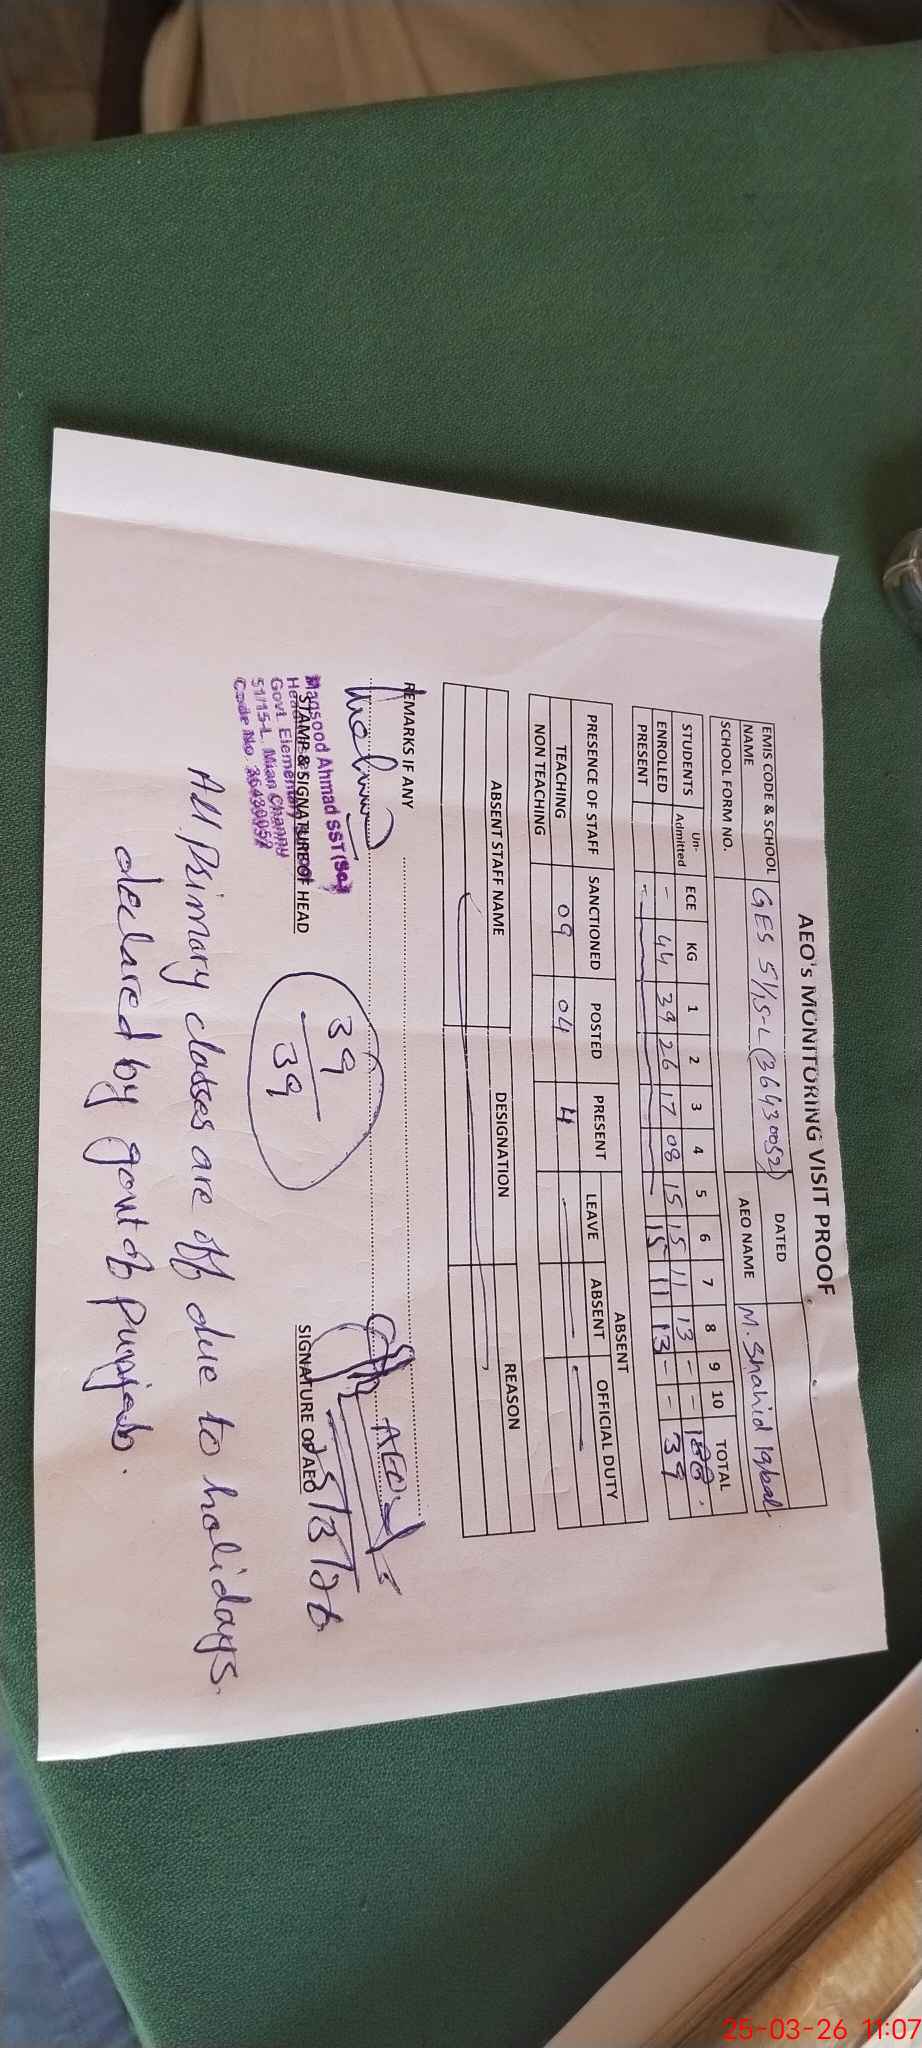 AEO's MONITORING VISIT PROOF
EMIS CODE & SCHOOL NAME GES 51/15-L (36430052) DATED
SCHOOL FORM NO. AEO NAME M. Shahid Iqbal
STUDENTS Un-Admitted ECE KG 1 2 3 4 5 6 7 8 9 10 TOTAL
ENROLLED - 44 39 26 17 08 15 15 11 13 - -
PRESENT 15 11 13 - - 39
PRESENCE OF STAFF SANCTIONED POSTED PRESENT ABSENT
LEAVE ABSENT OFFICIAL DUTY
TEACHING 09 04 4 - - -
NON TEACHING
ABSENT STAFF NAME DESIGNATION REASON
REMARKS IF ANY
AEO
Maqsood Ahmad SST (Sc)
STAMP & SIGNATURE OF HEAD
Govt. Elementary
51/15-L Mian Channu
Code No. 36430052
39
39
SIGNATURE OF AEO
25/3/26
All Primary classes are off due to holidays.
declared by govt of Punjab.
25-03-26 11:07